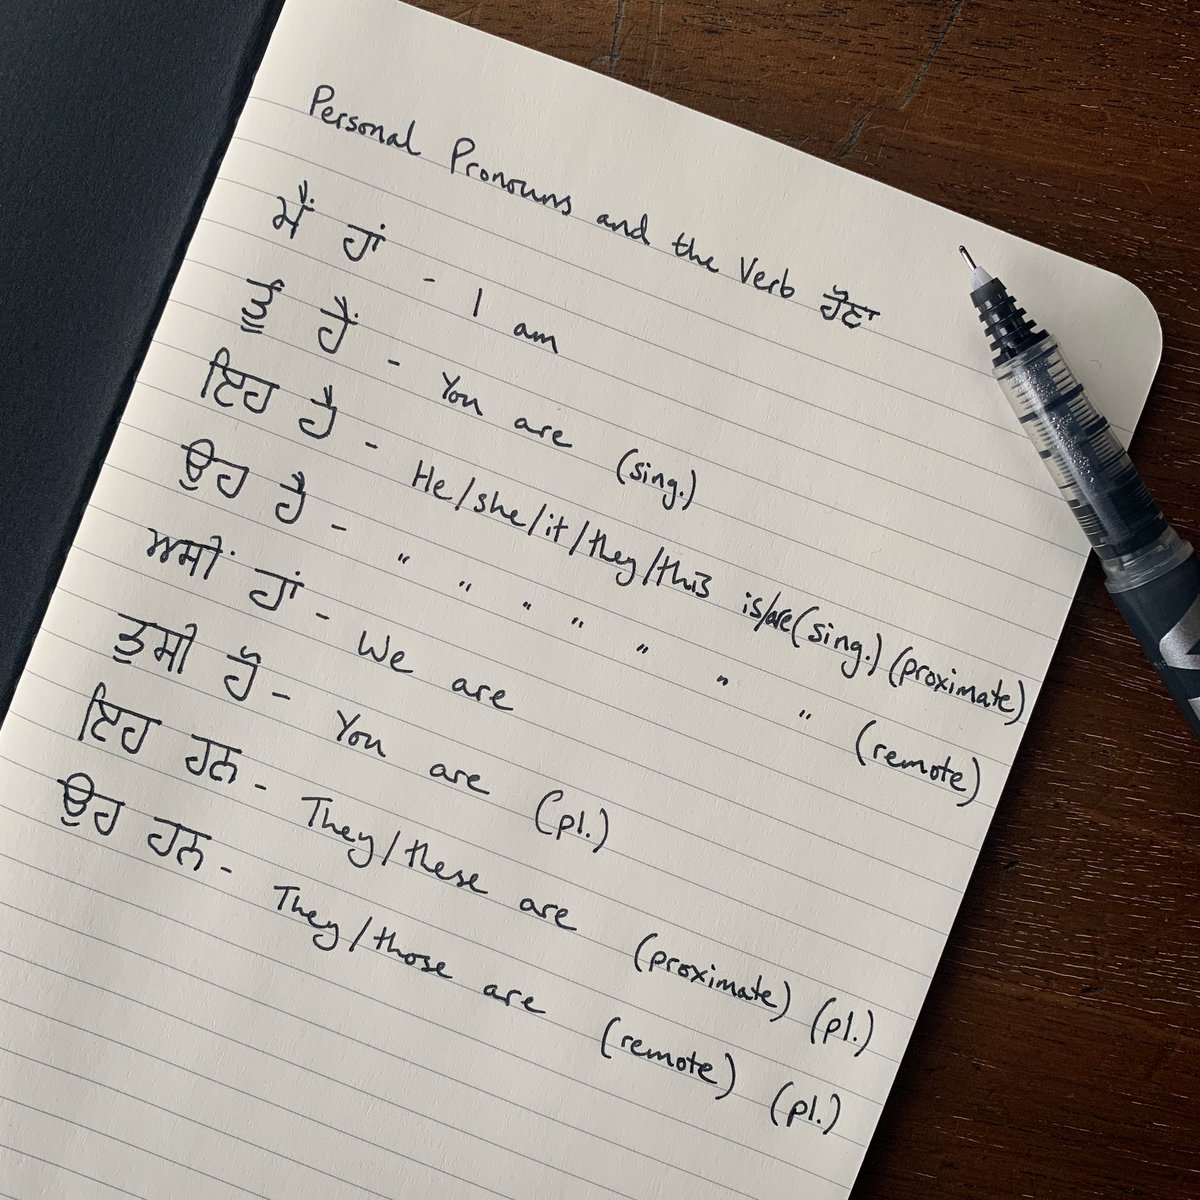 Personal Pronouns and the Verb ਹੋਣਾ
ਮੈਂ ਹਾਂ - I am
ਤੂੰ ਹੈਂ - You are (sing.)
ਇਹ ਹੈ - He/she/it/they/this is/are (sing.) (proximate)
ਉਹ ਹੈ - " " " " " " " (remote)
ਅਸੀਂ ਹਾਂ - We are
ਤੁਸੀਂ ਹੋ - You are (pl.)
ਇਹ ਹਨ - They/these are (proximate) (pl.)
ਉਹ ਹਨ - They/those are (remote) (pl.)